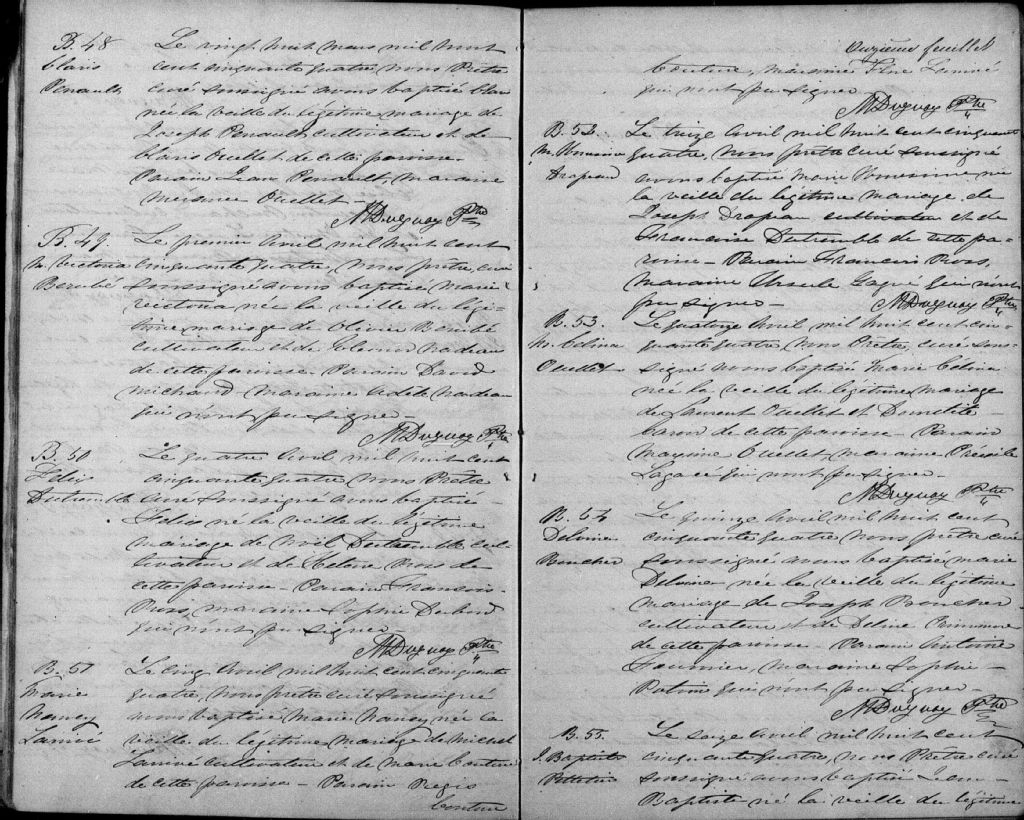 B. 48
Claris
Penault
Le vingt huit mars mil huit
cent cinquante quatre, nous Prêtre
curé soussigné avons baptisé Claris
née la veille du légitime mariage de
Joseph Penault, cultivateur et de
Claris Ouellet de cette paroisse.
Parain Jean Penault, maraine
Ouellet —
N Duguay Ptre
B. 49.
M. Victoria
Berubé
Le premier Avril mil huit cent
cinquante quatre, nous prêtre, curé
soussigné avons baptisé Marie
Victoria née la veille du légi-
time mariage de Olivier Berubé
cultivateur et de Nadeau
de cette paroisse. Parain David
Michaud Maraine Adele Nadeau
qui n'ont pu signer —
N Duguay Ptre
B. 50
Felix
Dutremble
Le quatre Avril mil huit cent
cinquante quatre nous Prêtre
curé soussigné avons baptisé
Felix né la veille du légitime
mariage de Noël Dutremble cul-
tivateur et de Helene Ross de
cette paroisse — Parain Francois
Ross, maraine Sophie
qui n'ont pu signer —
N Duguay Ptre
B. 51
Marie
Nancy
Lavoié
Le cinq Avril mil huit cent cinquante
quatre, nous prêtre curé soussigné
avons baptisé Marie Nancy née la
veille du légitime mariage de Michel
cultivateur et de Marie Couture
de cette paroisse — Parain Regis
Couture
Onzième feuillet
Couture, maraine
qui n'ont pu signer
N Duguay Ptre
B. 52.
M.
Drapeau
Le treize Avril mil huit cent cinquante
quatre, nous prêtre curé soussigné
avons baptisé Marie née
la veille du légitime mariage de
Joseph Drapeau cultivateur et de
Francoise Dutremble de cette pa-
roisse — Parain Francois Ross,
maraine Ursule Gagné qui n'ont
pu signer —
N Duguay Ptre
B. 53.
M. Célina
Ouellet
Le quatorze Avril mil huit cent cin-
quante quatre, nous Prêtre, curé sous-
signé avons baptisé Marie Célina
née la veille du légitime mariage
de Laurent Ouellet et Domitile
Caron de cette paroisse — Parain
Maxime Ouellet, maraine Presile
Lagacé qui n'ont pu signer —
N Duguay Ptre
B. 54
Delvina
Boucher
Le quinze Avril mil huit cent
cinquante quatre, nous prêtre curé
soussigné avons baptisé Marie
Delvina née la veille du légitime
mariage de Joseph Boucher
cultivateur et de Deline
de cette paroisse. Parain Antoine
Fournier, maraine Sophie
Potvin qui n'ont pu signer —
N Duguay Ptre
B. 55.
J. Baptiste
Le seize Avril mil huit cent
cinquante quatre, nous Prêtre curé
soussigné avons baptisé Jean-
Baptiste né la veille du légitime